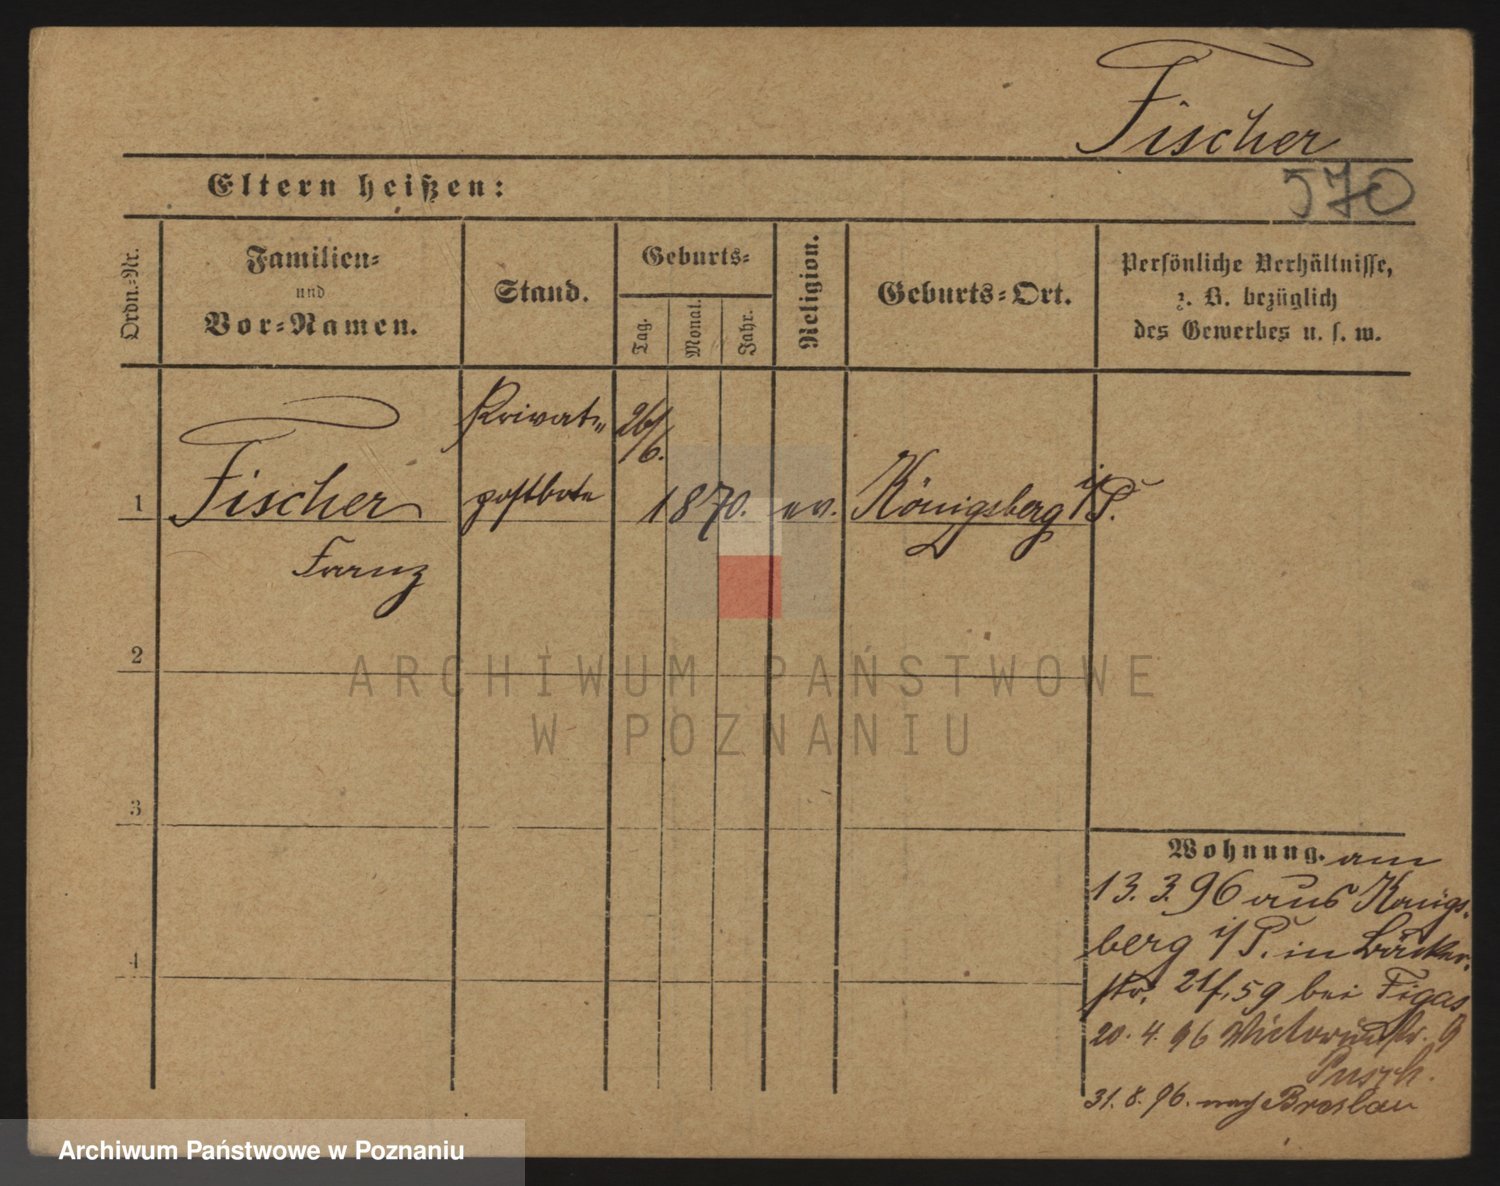 Fischer
Eltern heißen:
570
Ordn.-Nr.
Familien-
und
Vor-Namen.
Stand.
Geburts-
Tag.
Monat.
Jahr.
Religion.
Geburts-Ort.
Persönliche Verhältnisse,
z. B. bezüglich
des Gewerbes u. s. w.
1
Fischer
Franz
Privat-
postbote
26/6.
1870.
ev.
Königsberg i/P.
2
3
4
Wohnung. am
13.3.96 aus Königs-
berg i/P. in Bäcker-
str. 21/59 bei Figas
20.4.96 Victoriastr. 9
Pusch.
31.8.96. nach Breslau
ARCHIWUM PAŃSTWOWE
W POZNANIU
Archiwum Państwowe w Poznaniu